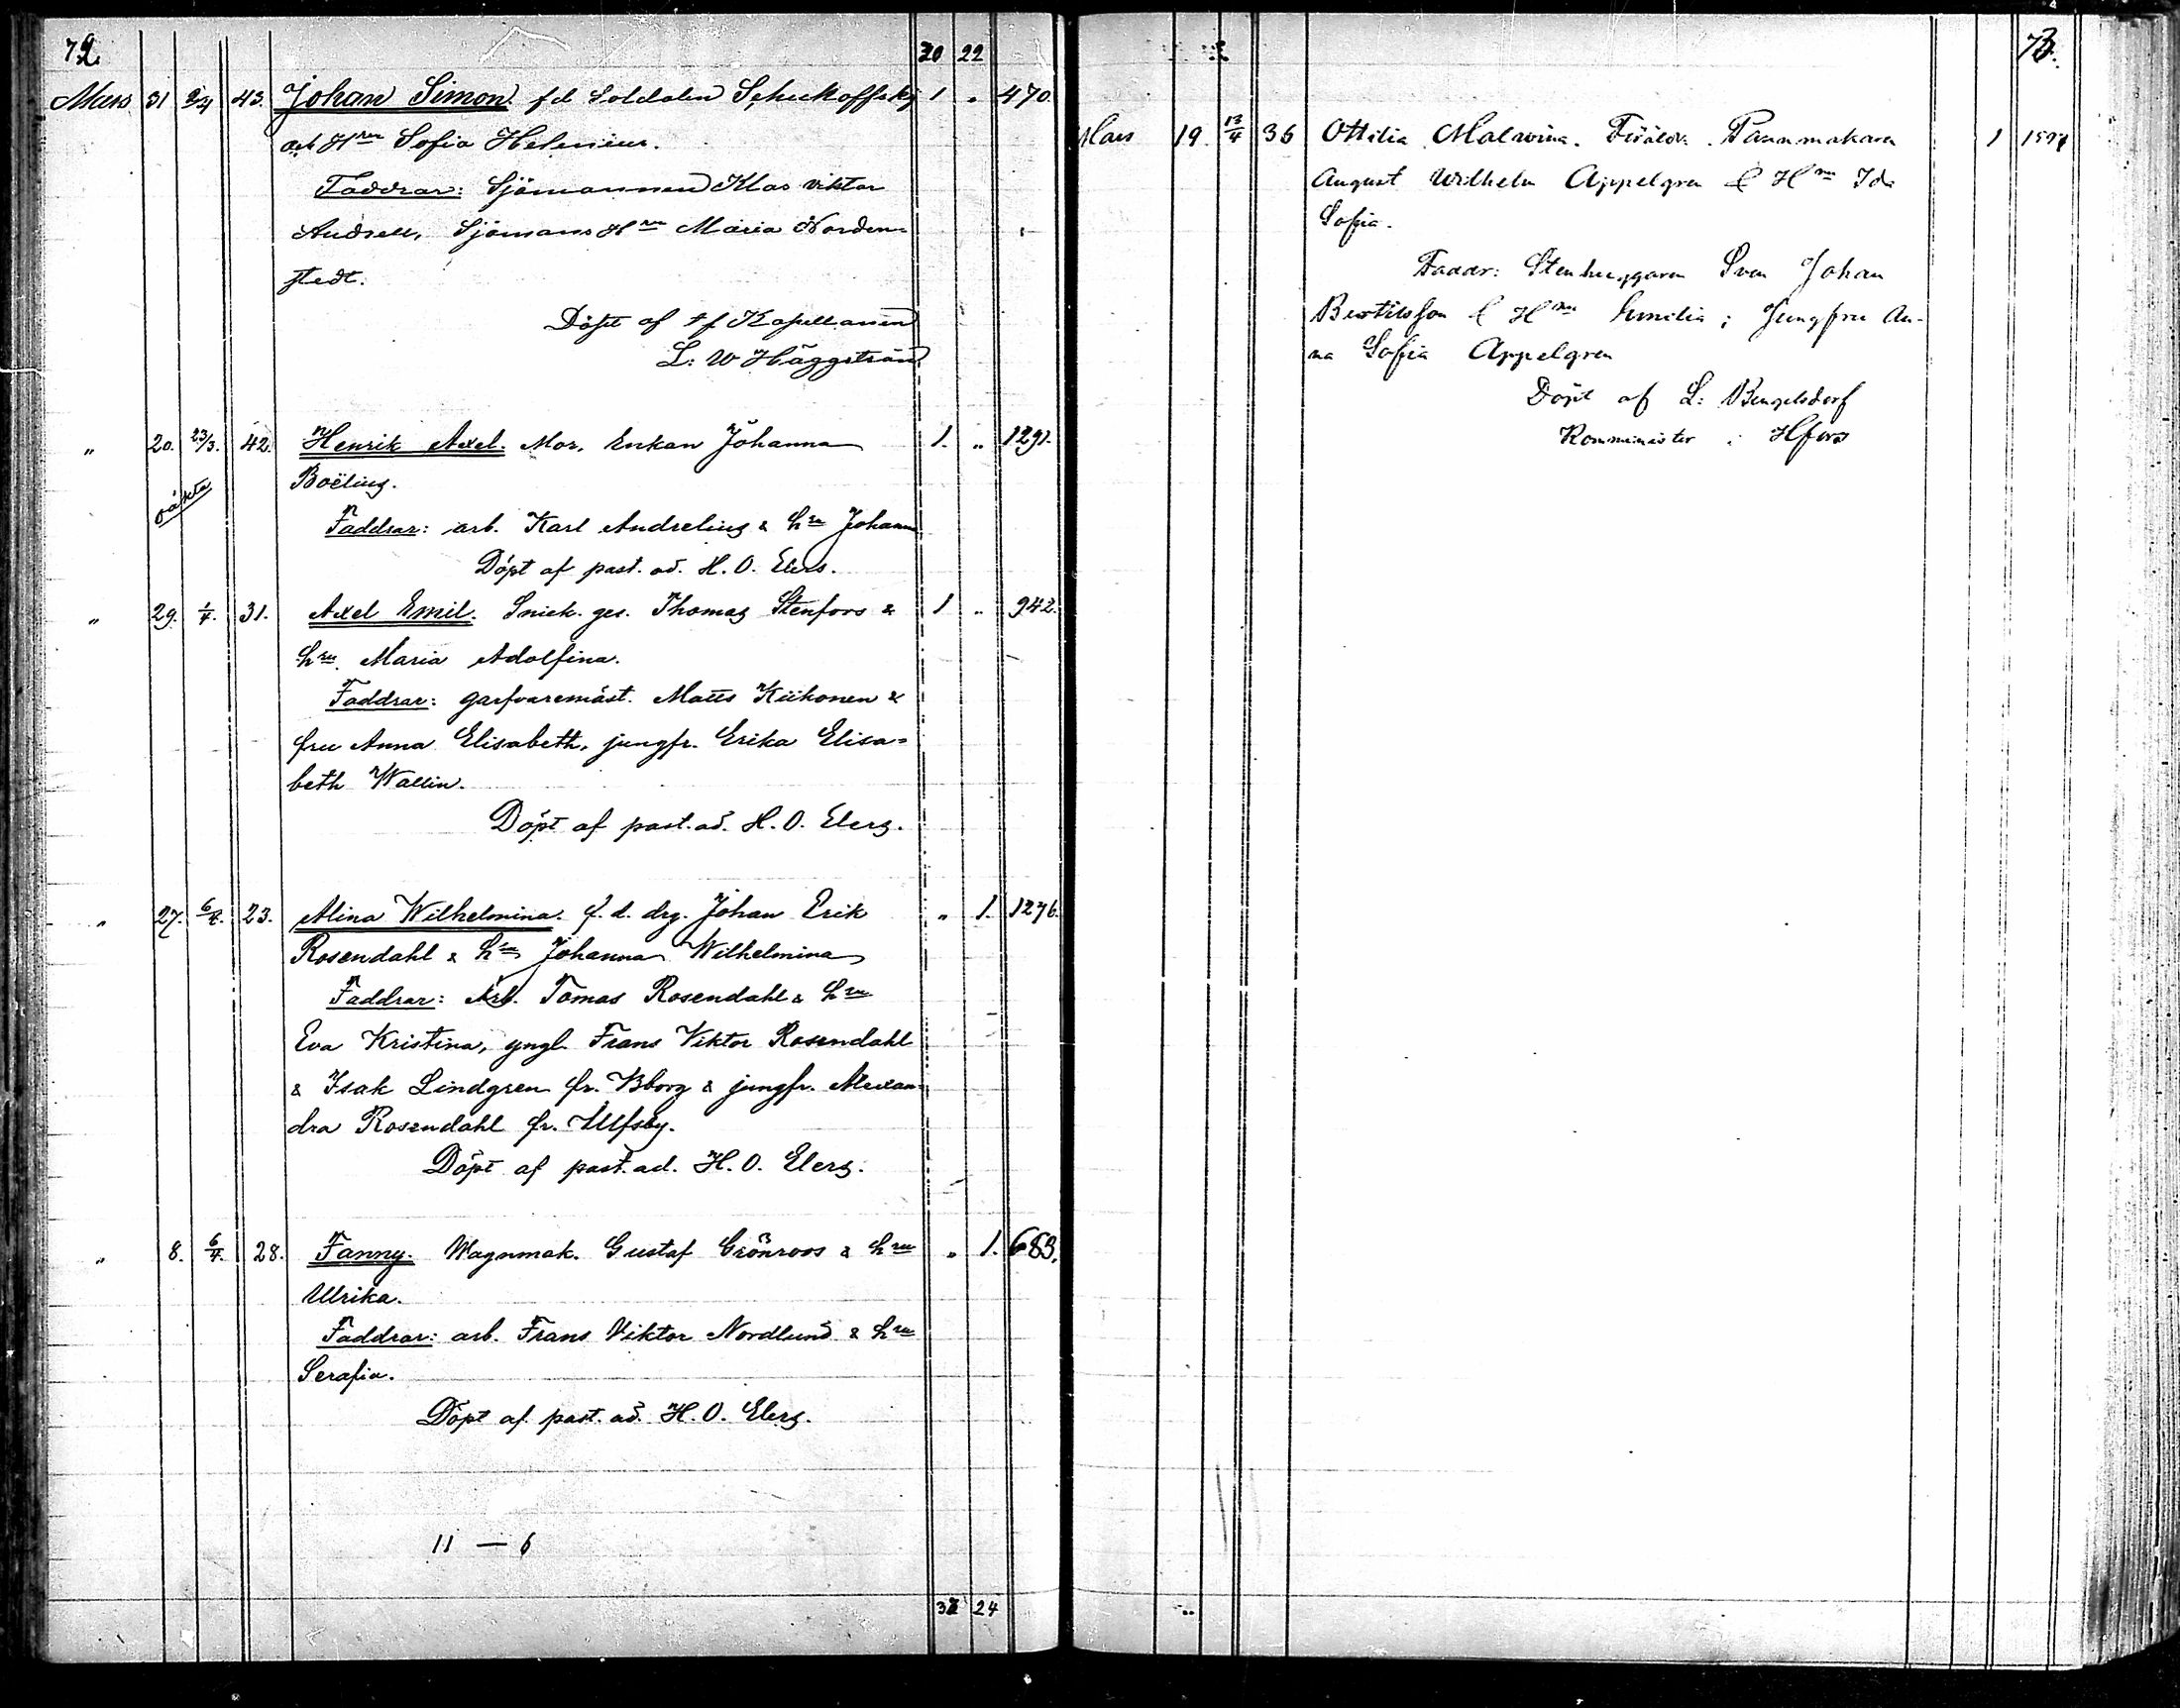 72.
20 22
Mars 31 2/4 43. Johan Simon. fd Soldaten Schukoffskj 1 „ 470.
och Hru Sofia Helenius.
Faddrar: Sjömannen Klas Viktor
Andsell, Sjömans Hru Maria Norden-
stedt.
Döpt af tf Kapellanen
L: W Häggström
„ 20. 23/3. 42. Henrik Axel. Mor, Enkan Johanna 1. „ 1291.
oäkta
Boëling.
Faddrar: arb. Karl Andreling & hru Johanna
Döpt af past. ad. H. O. Elers.
„ 29. 1/4. 31. Axel Emil. Snick. ges. Thomas Stenfors & 1 „ 942.
hru Maria Adolfina.
Faddrar: garfvaremäst. Matts Kiikonen &
fru Anna Elisabeth, jungfr. Erika Elisa=
beth Wallin.
Döpt af past. ad. H. O. Elers.
„ 27. 6/4. 23. Alina Wilhelmina. f. d. drg. Johan Erik „ 1. 1276.
Rosendahl & hru Johanna Wilhelmina
Faddrar: Arb. Tomas Rosendahl & hru
Eva Kristina, yngl. Frans Viktor Rosendahl
& Isak Lindgren fr. Bborg & jungfr. Alexan=
dra Rosendahl fr. Ulfsby.
Döpt af past. ad. H. O. Elers.
„ 8. 6/4. 28. Fanny. Wagnmak. Gustaf Grönroos & hru „ 1. 683.
Ulrika.
Faddrar: arb. Frans Viktor Nordlund & hru
Serafia.
Döpt af past. ad. H. O. Elers.
11 — 6
24
73.
Mars 19. 13/4 36 Ottilia Malwina. Föräldr. Pannmakaren 1
August Wilhelm Appelgren & Hru Ida
Sofia.
Faddr: Stenhuggaren Sven Johan
Bertilsson & Hru Emilia; Jungfru An-
na Sofia Appelgren
Döpt af L: Bengelsdorf
Komminister i Hfors